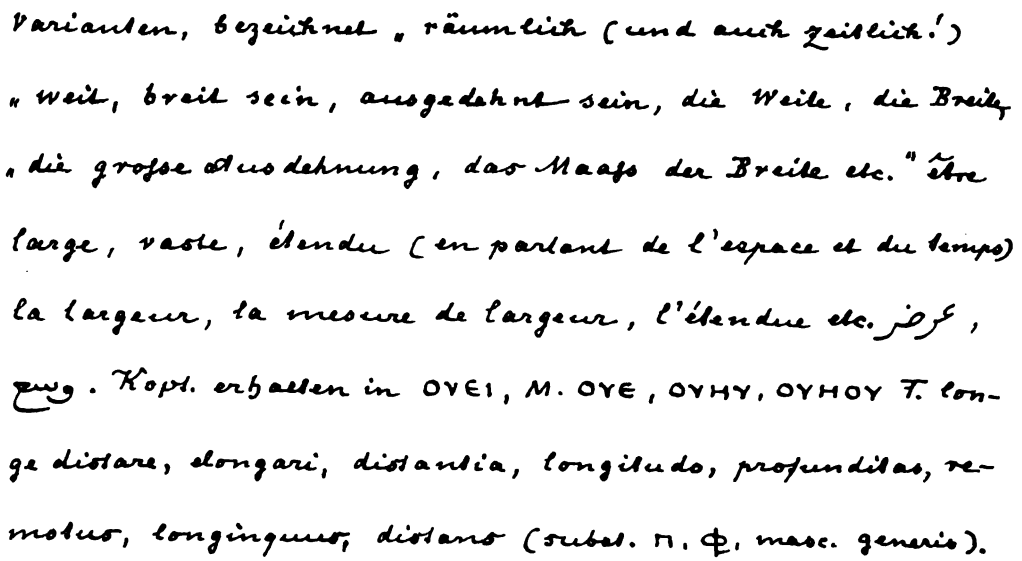 Varianten, bezeichnet „räumlich (und auch zeitlich!)
„weit, breit sein, ausgedehnt sein, die Weite, die Breite,
„die grosse Ausdehnung, das Maass der Breite etc.“ être
large, vaste, étendu (en parlant de l'espace et du temps)
la largeur, la mesure de largeur, l'étendue etc. عرض,
. Kopt. erhalten in ⲞⲨⲈⲒ, M. ⲞⲨⲈ, ⲞⲨⲎⲨ, ⲞⲨⲎⲞⲨ T. lon-
ge distare, elongari, distantia, longitudo, profunditas, re-
motus, longinquus, distans (subst. ⲡ. ⲫ. masc. generis).